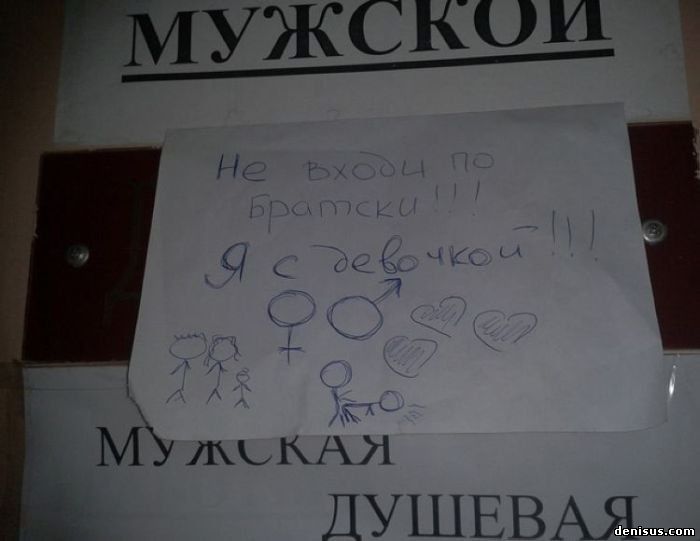 МУЖСКОЙ
Не входи по
братски!!!
Я с девочкой!!!
МУЖСКАЯ
ДУШЕВАЯ
denisus.com